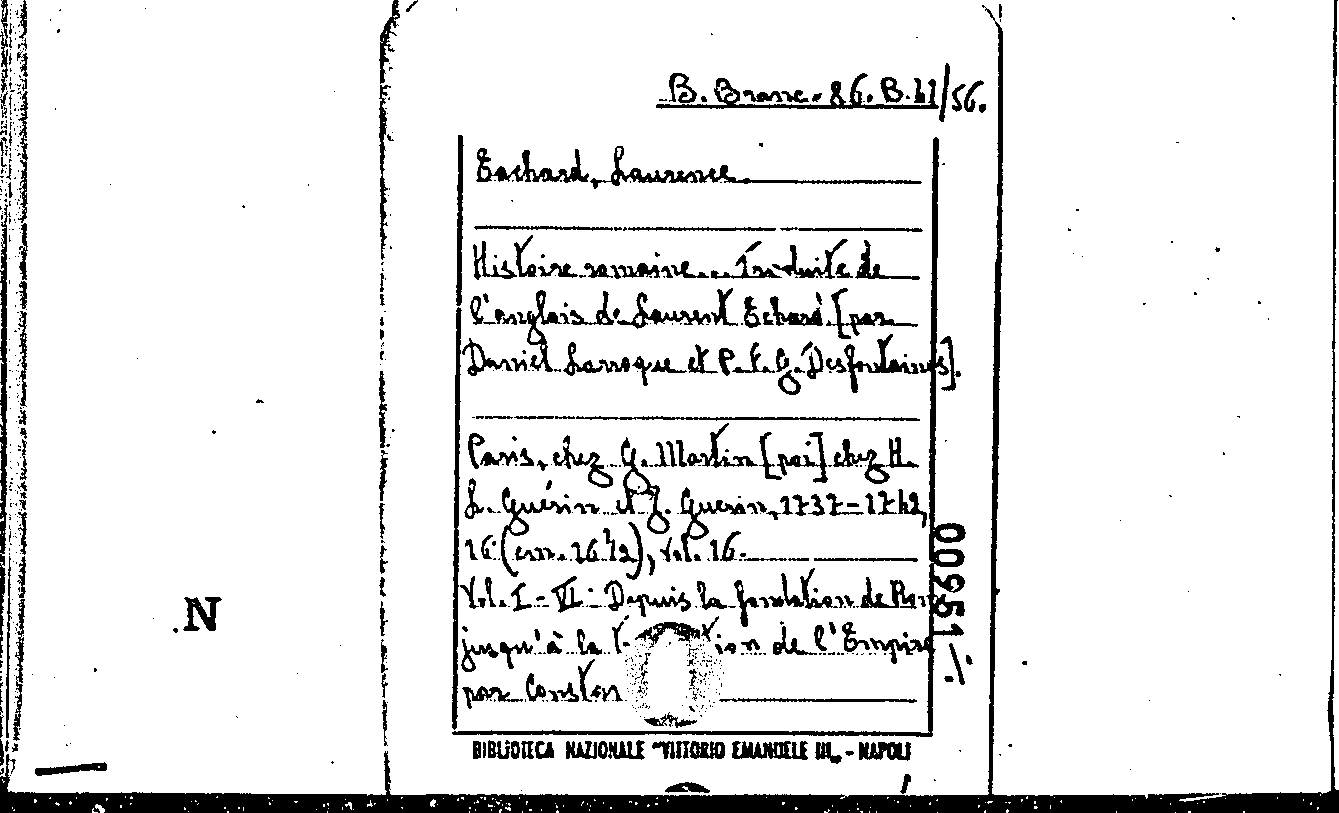 B. Branc. 86. B. 41/56.
Eachard, Laurence.
Histoire romaine... Traduite de
l'anglais de Laurent Echard [par
Daniel Larroque et P. F. G. Desfontaines].
Paris, chez G. Martin [poi] chez H.
L. Guérin et J. Guerin, 1737-1742,
16° (cm. 16½), vol. 16.
Vol. I-VI: Depuis la fondation de Rom
jusqu'à la t tion de l'Empire
par Constan
BIBLIOTECA NAZIONALE "VITTORIO EMANUELE III„ - NAPOLI
00951
N